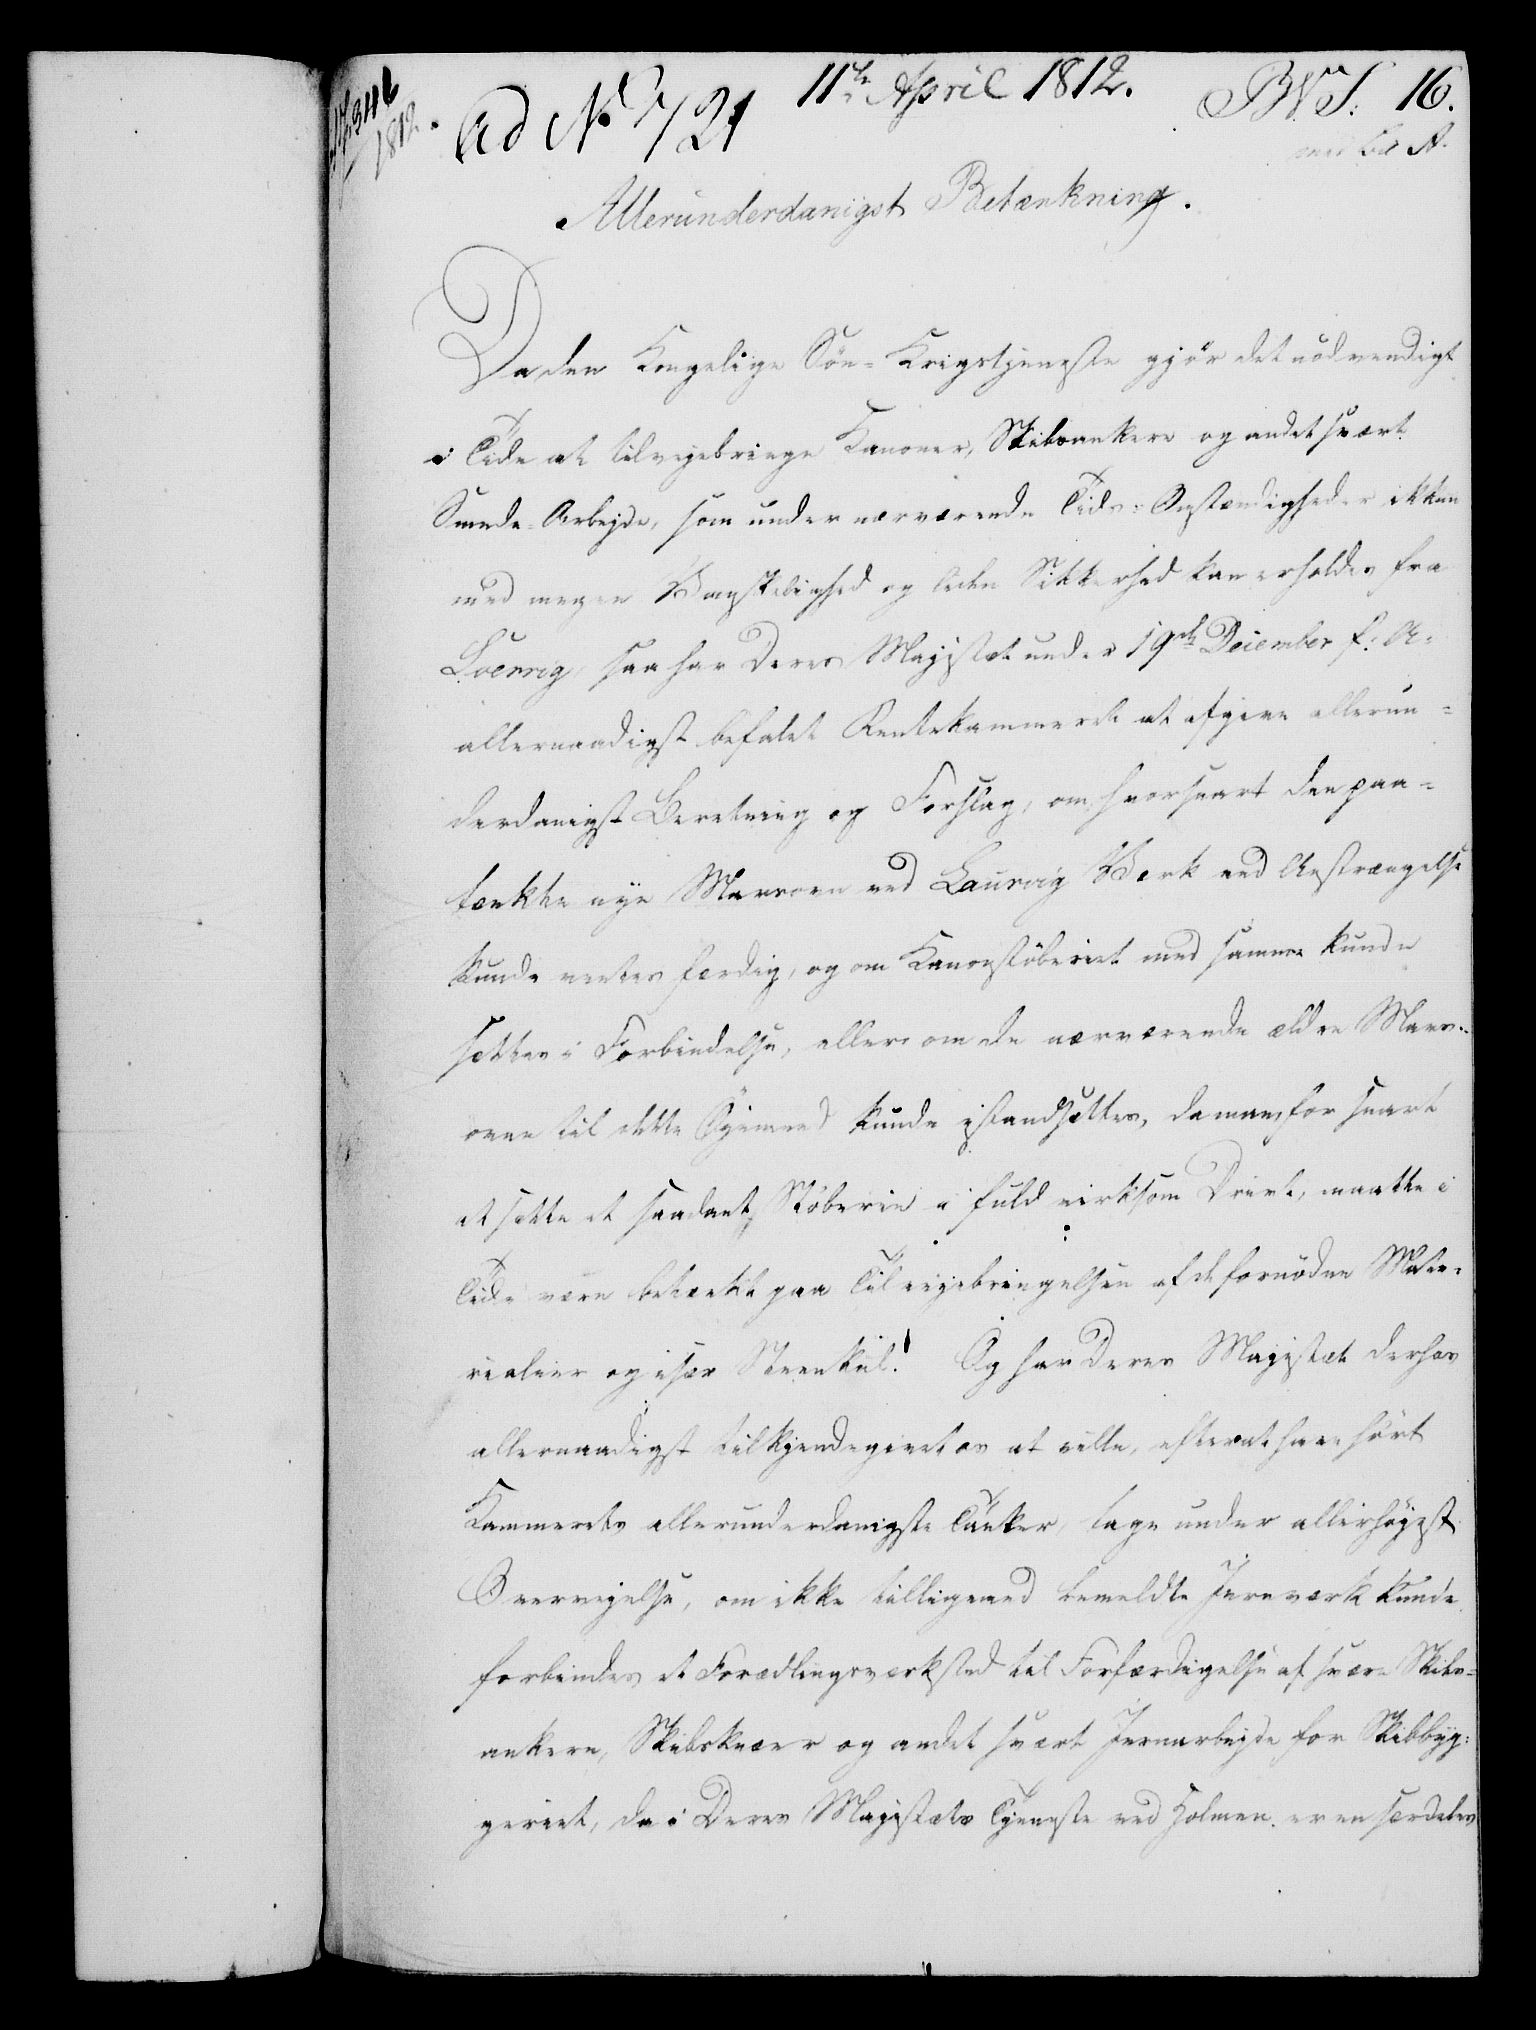 11te April 1812.
BWS. 16.
1812.
ad No 721
med Bil A.
Allerunderdanigst Betænkning.
Da den Kongelige Söe-Krigstjeneste gjör det nödvendigt
i Tide at tilvejebringe Kanoner, Skibsankere og andet svært
Smede-Arbejde, som under nærværende Tids-Omstændigheder ikkun
med megen Vanskelighed og liden Sikkerhed kan erholdes fra
saa har Deres Majestæt under 19de December f: A:
allernaadigst befalet Rentekammeret at afgive allerun-
derdanigst Beretning og Forslag, om hvorsnart den paa-
tænkte nye Masovn ved Laurvig Værk ved Anstrængelse
kunde ventes færdig, og om Kanonstöberiet med samme kunde
sættes i Forbindelse, eller om de nærværende ældre Mas-
ovne til dette Öjemed kunde istandsættes, da man, for snart
at sætte et saadant Stöberie i fuld virksom Drivt, maatte i
Tide være betænkt paa Tilvejebringelsen af de fornödne Mate-
rialier og især Steenkul! Og har Deres Majestæt derhos
allernaadigst tilkjendegivet os at ville, efterat have hört
Kammerets allerunderdanigste Tanker, tage under allerhöjest
Overvejelse, om ikke tilligemed bemeldte Jernværk kunde
forbindes et Forædlingsværksted til Forfærdigelse af svære Skibs-
ankere, Skibsknæer og andet svært Jernarbejde for Skibbyg-
geriet, da i Deres Majestæts Tjeneste ved Holmen er en særdeles